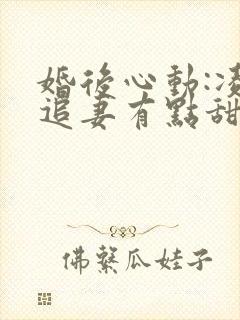 婚後心動:凌
追妻有點甜
佛繫瓜娃子